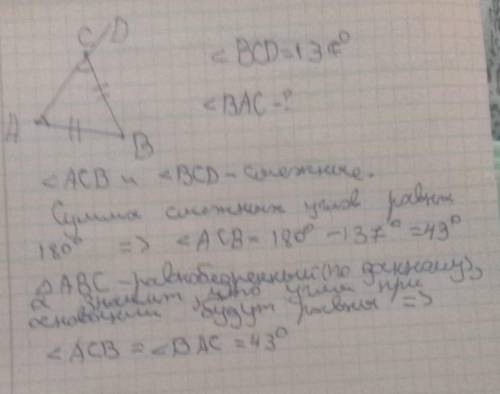 C D
∠BCD=137°
∠BAC-?
A
B
∠ACB и ∠BCD-смежные.
Сумма смежных углов равна
180° => ∠ACB=180°-137°=43°
△ABC-равнобедренный(по данному),
а значит, что углы при
основании будут равны =>
∠ACB=∠BAC=43°